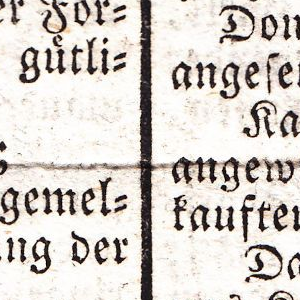 er For-
gütli-
gemel-
ung der
Don
angesei
Ka
angew
kaufter
Da